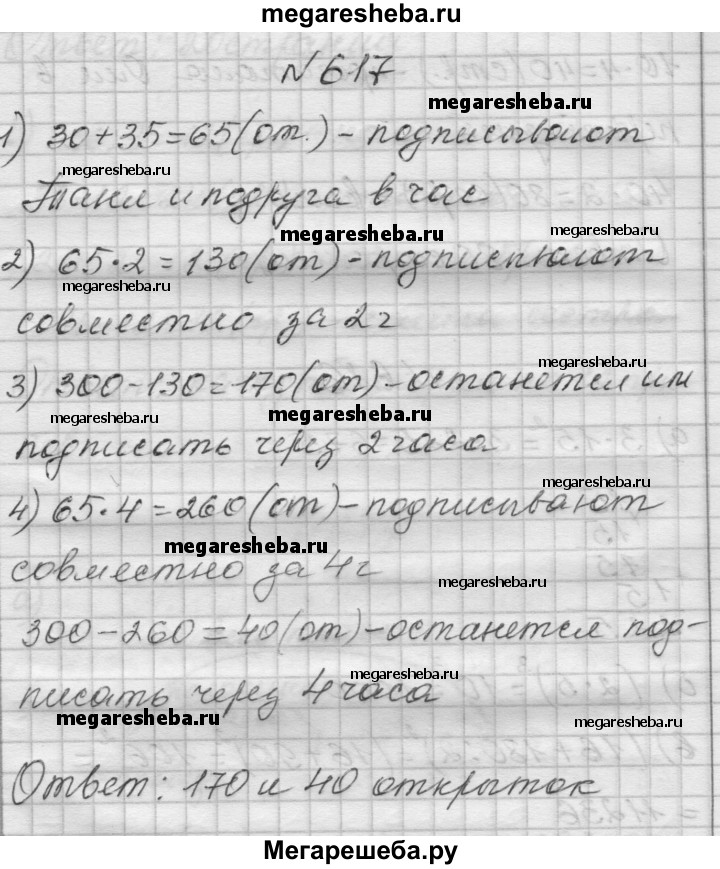 megaresheba.ru
№617
megaresheba.ru
1) 30+35=65(от.) - подписывают
megaresheba.ru
Таня и подруга в час
megaresheba.ru
megaresheba.ru
2) 65·2=130(от) - подпис
megaresheba.ru
совместно за 2ч
megaresheba.ru
3) 300-130=170(от) - останется им
megaresheba.ru
megaresheba.ru
подписать через 2 часа
megaresheba.ru
4) 65·4=260(от) - подписывают
megaresheba.ru
совместно за 4ч
megaresheba.ru
300-260=40(от) - останется под-
megaresheba.ru
писать через 4 часа
megaresheba.ru
megaresheba.ru
Ответ: 170 и 40 открыток
Мегарешеба.ру